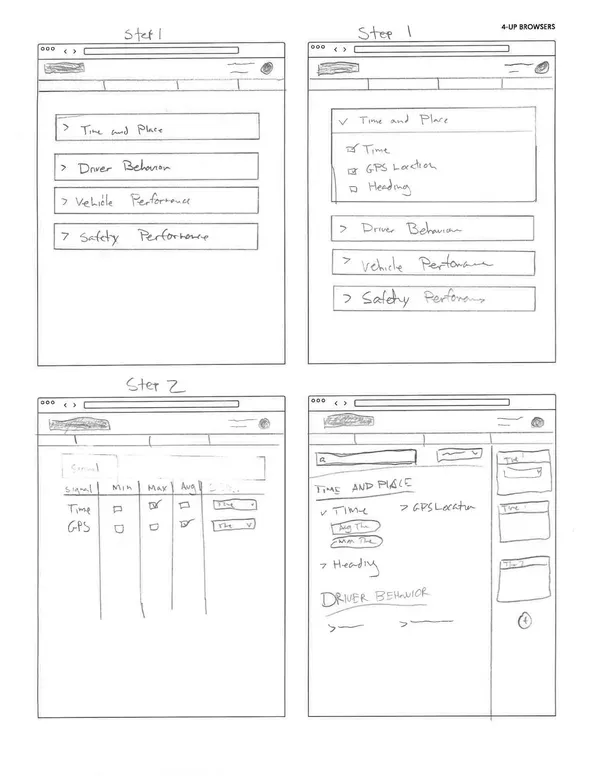 4-UP BROWSERS
Step 1
> Time and Place
> Driver Behavior
> Vehicle Performance
> Safety Performance
Step 1
Time and Place
Time
GPS Location
Heading
> Driver Behavior
> Vehicle Performance
> Safety Performance
Step 2
Signal
Signal Min Max Avg
Time Time
GPS The
TIME AND PLACE
TIME > GPS Location
Avg The
> Heading
DRIVER BEHAVIOR